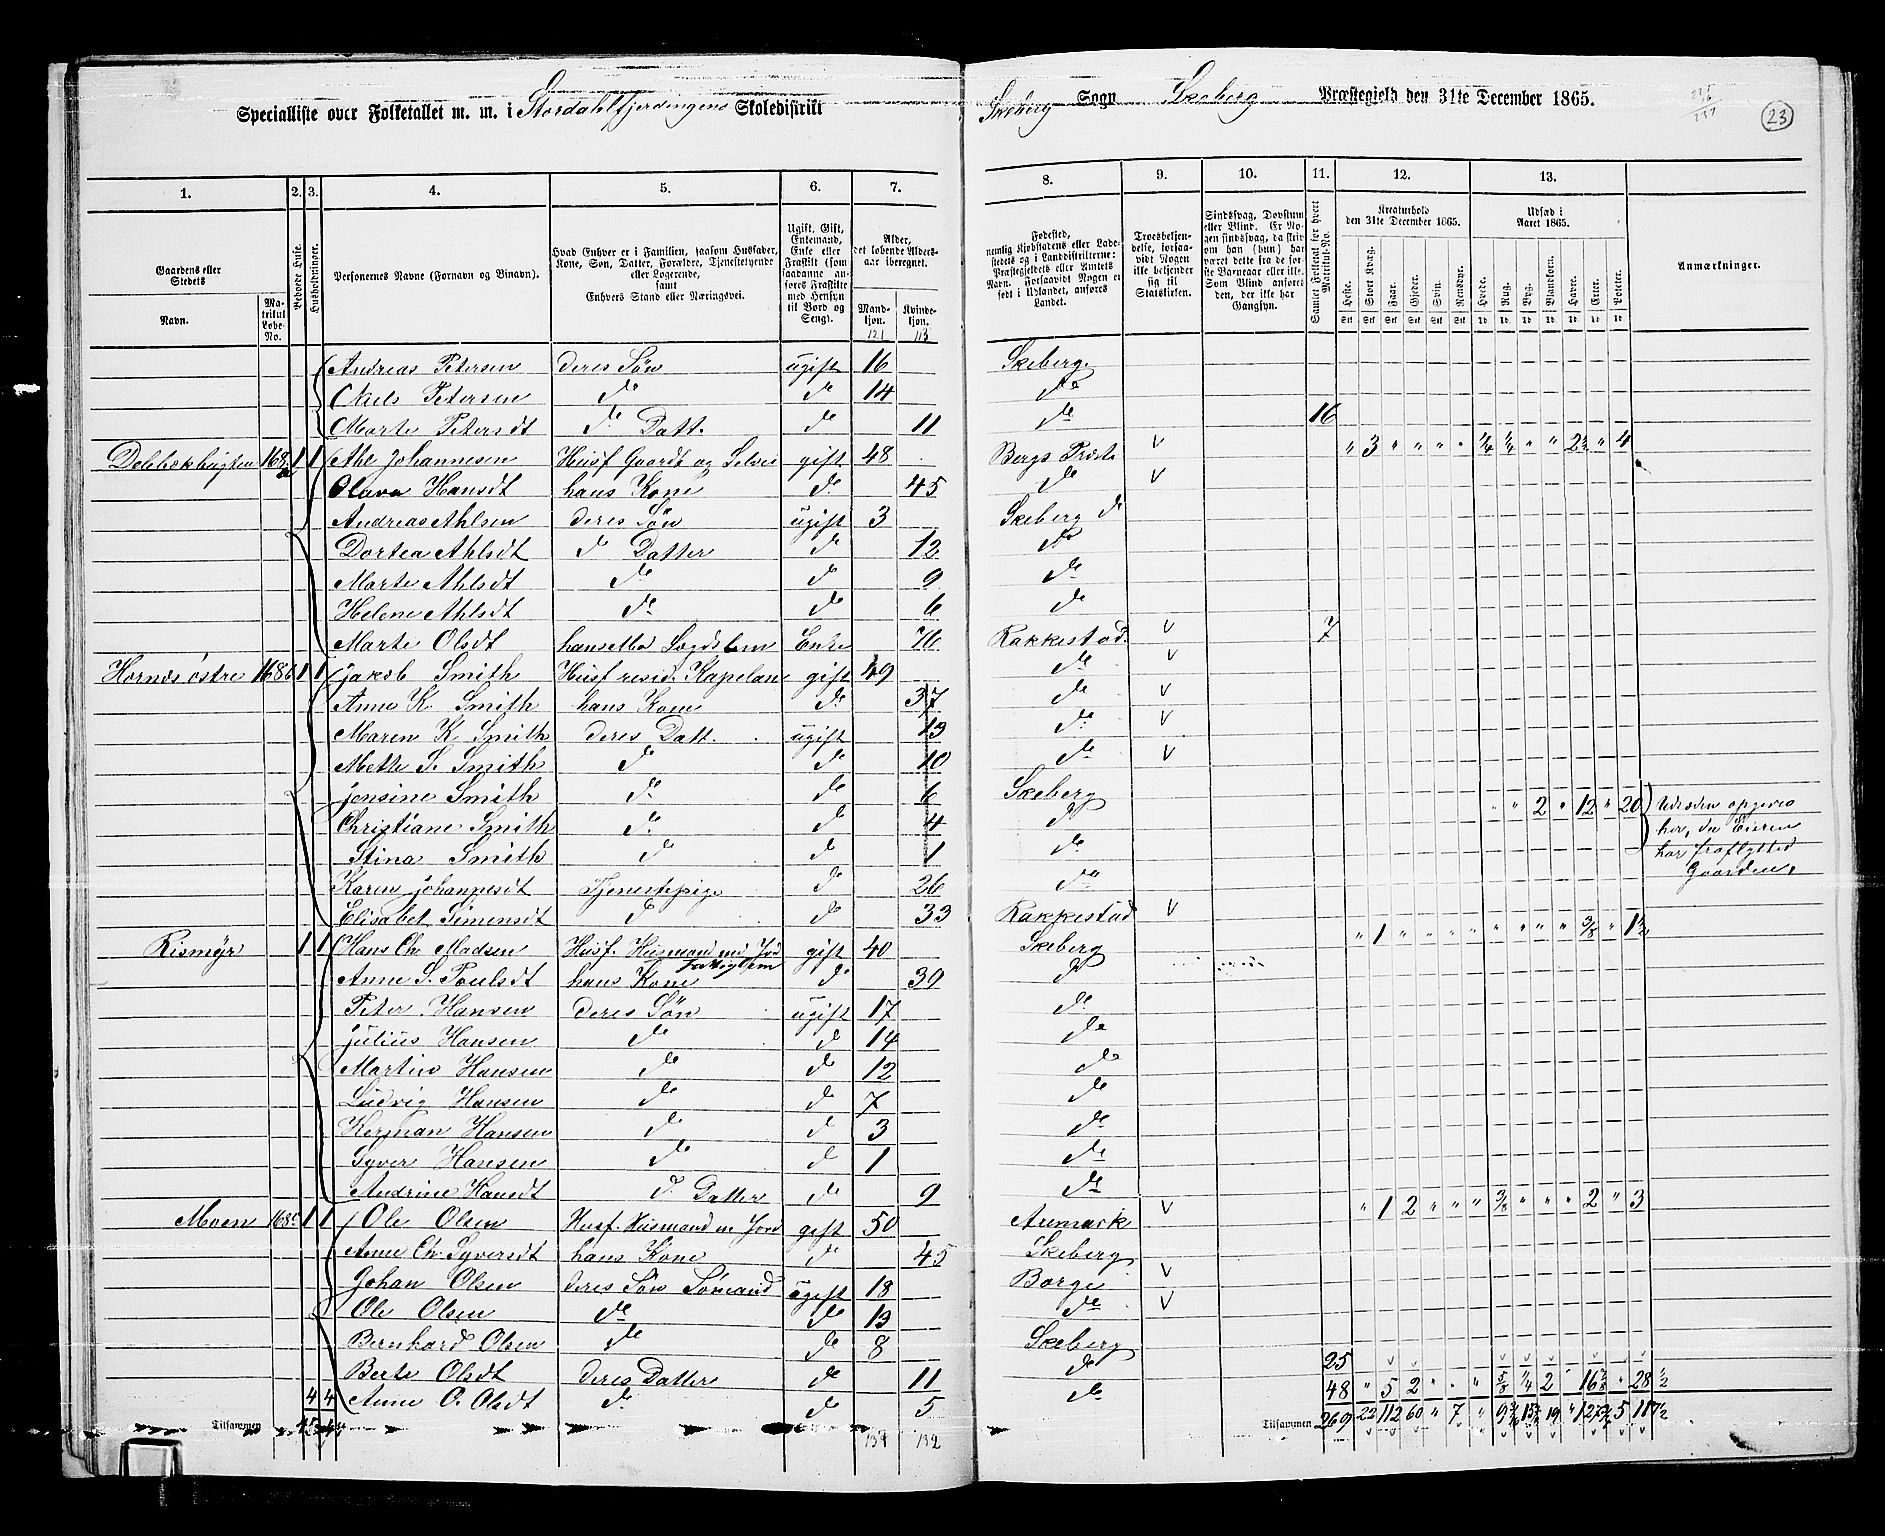 Specialliste over Folketallet m. m. i Stordahlfjerdingens Skoledistrikt Skeberg Sogn Skeberg Præstegjeld den 31te December 1865.
23
1. 2. 3. 4. 5. 6. 7. 8. 9. 10. 11. 12. 13.
Gaardens eller Stedets
Navn.
Matrikul Løbe-No.
Beboede Huse.
Husholdninger.
Personernes Navne (Fornavn og Binavn).
Hvad Enhver er i Familien, saasom Husfader, Kone, Søn, Datter, Forældre, Tjenestetyende eller Logerende, samt Enhvers Stand eller Næringsvei.
Ugift, Gift, Enkemand, Enke eller Fraskilt (som saadanne anføres Fraskilte med Hensyn til Bord og Seng).
Alder, det løbende Aldersaar iberegnet.
Mandkjøn. Kvindekjøn.
121 113
Fødested, nemlig Kjøbstadens eller Ladestedets og i Landdistrikterne: Præstegjeldets eller Amtets Navn. Forsaavidt Nogen er født i Udlandet, anføres Landet.
Troesbekjendelse, forsaavidt Nogen ikke bekjender sig til Statskirken.
Sindssvag, Døvstum eller Blind. Er Nogen sindssvag, da skrives om han (hun) har været dette fra de første Barneaar eller ikke. Som Blind anføres den, der ikke har Gangsyn.
Samlet Folketal for hvert Matrikul-No.
Kreaturhold den 31te December 1865.
Heste. Stort Kvæg. Faar. Gjeder. Svin. Rensdyr.
Udsæd i Aaret 1865.
Hvede. Rug. Byg. Blandkorn. Havre. Erter. Poteter.
Anmærkninger.
Andreas Petersen deres Søn ugift 16 Skeberg.
Niels Petersen do do 14 do
Marte Petersdt do Datt. do 11 do 16
168 1 1 Ahl Johannesen Husf Gaardb og Selvei gift 48 Bergs Præst v " 3 " " " " 1/4 1/4 " " 2 1/2 " 4
Olava Hansdt hans Kone do 45 do v
Andreas Ahlsen deres Søn ugift 3 Skeberg do
Dortea Ahlsdt do Datter do 12 do
Marte Ahlsdt do do 9 do
Helene Ahlsdt do do 6 do
Marte Olsdt Enke 76 Rakkestad. v 7
Hornæs østre 168 1 1 Jakob Smith Husf resid. Kapelan gift 49 do v
Anne K. Smith hans Kone do 37 do v
Maren K. Smith deres Datt. ugift 13 do v
Mette S. Smith do do 10 do v
Jensine Smith do do 6 Skeberg " " 2 " 12 " 20 Udsæden opgives
Christiane Smith do do 4 do her, da Eieren
Stina Smith do do 1 do har fraflyttet
Karen Johannesdt Tjenestepige do 26 do Gaarden.
Elisabet Simensdt do do 33 Rakkestad v
Rismyr 1 1 Hans Ch. Madsen Husf. Husmand m Jord gift 40 Skeberg " 1 " " " " " " " " 3/8 " 1 1/2
Anne S. Poulsdt hans Kone do 39 do
Peter Hansen deres Søn ugift 17 do
Julius Hansen do do 14 do
Martin Hansen do do 12 do
Ludvig Hansen do do 7 do
Herman Hansen do do 3 do
Syver Hansen do do 1 do
Andrine Hansdt do Datter do 9 do
Moen 168 1 1 Ole Olsen Husf. Husmand m Jord gift 50 Aremark v " 1 2 " " " 3/8 " " " 2 " 3
Anne Ch. Syversdt hans Kone do 45 Skeberg
Johan Olsen deres Søn Sømand ugift 18 Borge v
Ole Olsen do do 13 do v
Bernhard Olsen do do 8 Skeberg
Berte Olsdt deres Datter do 11 do 25
4 4 Anne O. Olsdt do do 5 do 48 " 5 2 " " " 5/8 1/4 2 " 16 7/8 " 28 1/2
Tilsammen 139 132 Tilsammen 269 22 112 60 " 7 "